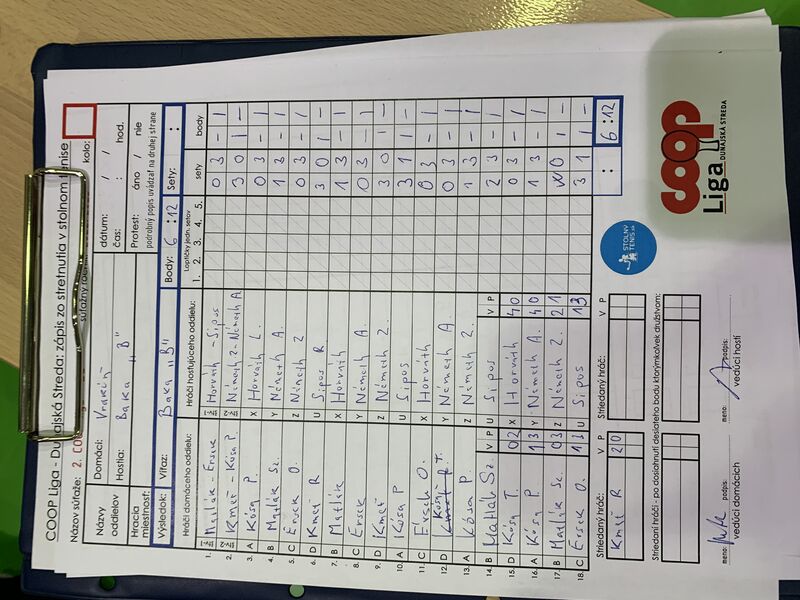 COOP Liga - Dunajská Streda: zápis zo stretnutia v stolnom tenise
Názov súťaže: 2. CO
kolo:
Názvy oddielov
Domáci: Vrakúň
Hostia: Baka "B"
dátum: / /
čas: : hod.
Hracia miestnosť:
Protest: áno / nie
podrobný popis uvádzať na druhej strane
Výsledok: Víťaz: Baka "B" Body: 6 : 12 Sety: :
Hráči domáceho oddielu: Hráči hosťujúceho oddielu: Loptičky jedn. setov sety body
1. 2. 3. 4. 5.
1. Matlák - Érsek Horváth - Sipos 0 3 - 1
2. Kmeť - Kósa P. Németh Z - Németh A 3 0 1 -
3. A Kósa P. X Horváth L. 0 3 - 1
4. B Matlák Sz. Y Németh A. 1 3 - 1
5. C Érsek O. Z Németh Z 0 3 - 1
6. D Kmeť R U Sipos R 3 0 1 -
7. B Matlák X Horváth 1 3 - 1
8. C Érsek Y Németh A. 0 3 - 1
9. D Kmeť Z Németh Z 3 0 1 -
10. A Kósa P U Sipos 3 1 1 -
11. C Érsek O. X Horváth 0 3 - 1
12. D T. Y Németh A. 0 3 - 1
13. A Kósa P. Z Németh Z. 1 3 - 1
V P V P
14. B Matlák Sz U Sipos 2 3 - 1
15. D Kósa T. 0 2 X Horváth 4 0 0 3 - 1
16. A Kósa P. 1 3 Y Németh A. 4 0 1 3 - 1
17. B Matlák Sz. 0 3 Z Németh Z. 2 1 0 1 -
18. C Érsek O. 1 3 U Sipos 1 3 3 1 1 -
: 6 : 12
Striedaný hráč: V P Striedaný hráč: V P
Kmeť R 2 0
Striedaní hráči - po dosiahnutí desiateho bodu ktorýmkoľvek družstvom:
meno: podpis: vedúci domácich
meno: podpis: vedúci hostí
STOLNÝ TENIS.sk
coop
Liga DUNAJSKÁ STREDA